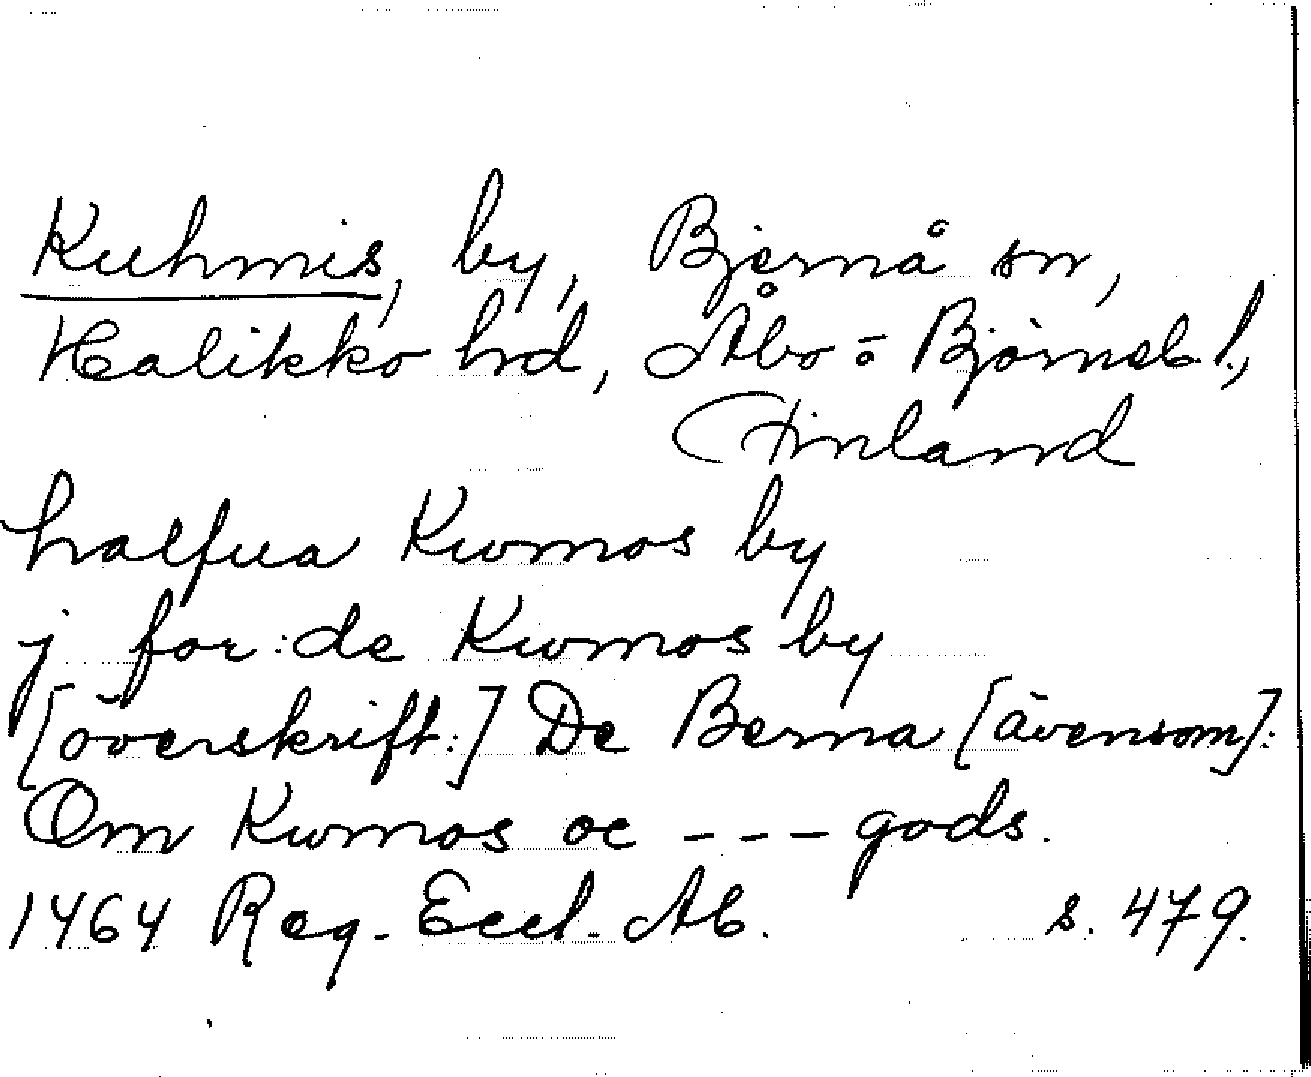 Kuhmis, by, Bjernå sn,
Halikko hd, Åbo-o Björneb. l.,
Finland
halfua Kwmos by
j for:de Kwmos by
[överskrift:] De Berna [ävensom]:
Om Kwmos oc --- gods.
1464 Reg. Eccl. Ab. s. 479.